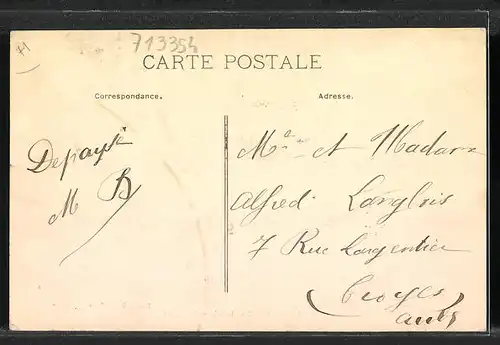 713354
CARTE POSTALE
Correspondance.
Adresse.
Depaysé
M B
Mr et Madame
Alfred Langlois
7 Rue Largentier
Troyes
Aube